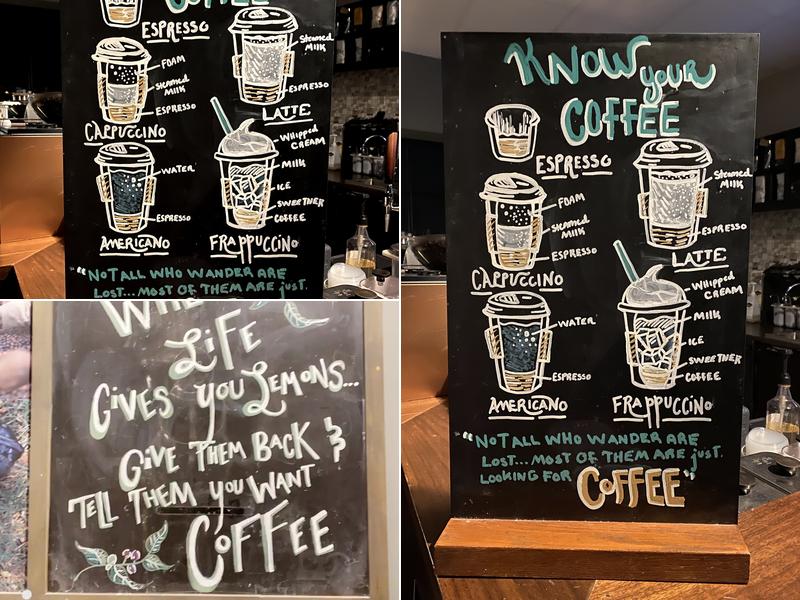 COFFEE
ESPRESSO
FOAM
STEAMED
MILK
ESPRESSO
CAPPUCCINO
STEAMED
MILK
ESPRESSO
LATTE
WATER
ESPRESSO
AMERICANO
WHIPPED
CREAM
MILK
ICE
SWEETNER
COFFEE
FRAPPUCCINO
"NOT ALL WHO WANDER ARE
LOST... MOST OF THEM ARE JUST.
LIFE
GIVE'S YOU LEMONS...
GIVE THEM BACK &
TELL THEM YOU WANT
COFFEE
KNOW YOUR
COFFEE
ESPRESSO
FOAM
STEAMED
MILK
ESPRESSO
CAPPUCCINO
STEAMED
MILK
ESPRESSO
LATTE
WATER
ESPRESSO
AMERICANO
WHIPPED
CREAM
MILK
ICE
SWEETNER
COFFEE
FRAPPUCCINO
"NOT ALL WHO WANDER ARE
LOST... MOST OF THEM ARE JUST.
LOOKING FOR COFFEE"